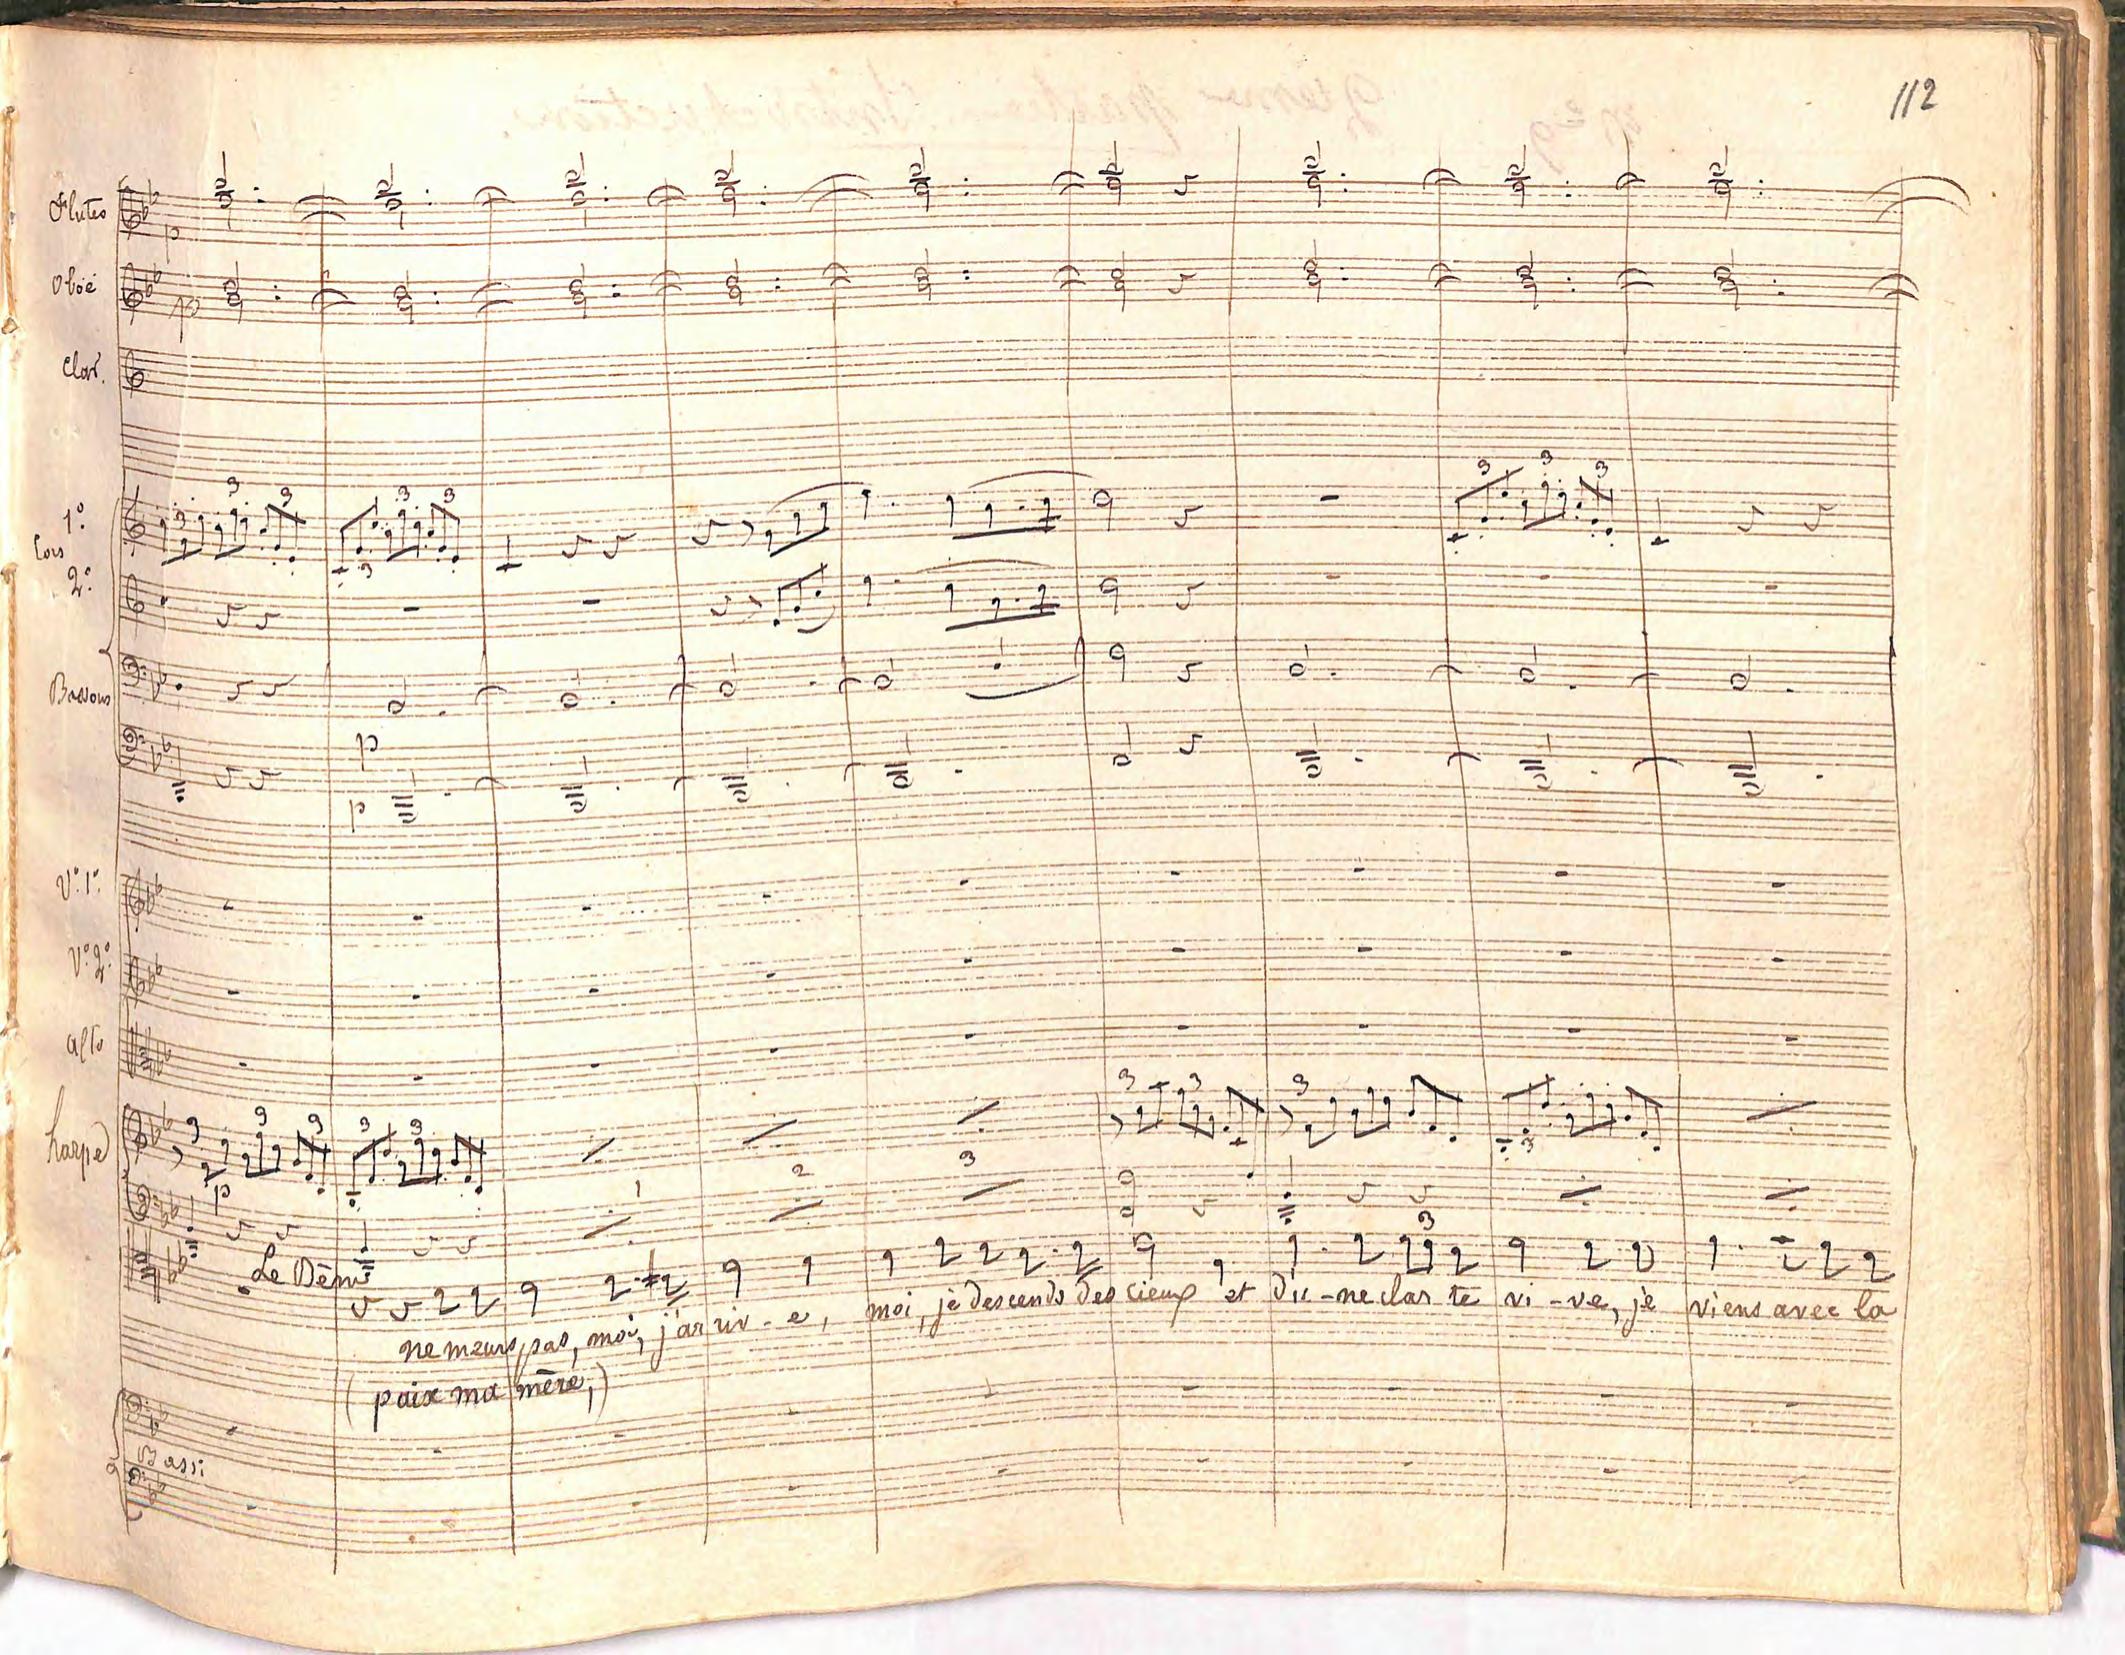 112
Flutes
p
Oboé
p
Clar.
3 3 3
3 3 3
3 3 3
1º
Cors
2º
Bassons
p
p
Vº 1º
Vº 2º
alto
harpe
3 3 3
3 3
3 3
3
3
p
1 2 3
3
Le Démi
ne meurs pas, moi, j'arriv-e, moi, je descends des cieux et di-ne clar te vi-ve, je viens avec la
(paix ma mère,)
Bassi